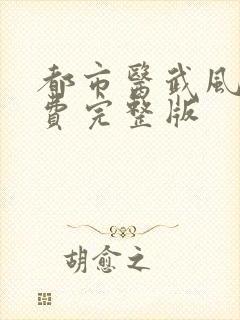 都市醫武風
費完整版
胡愈之